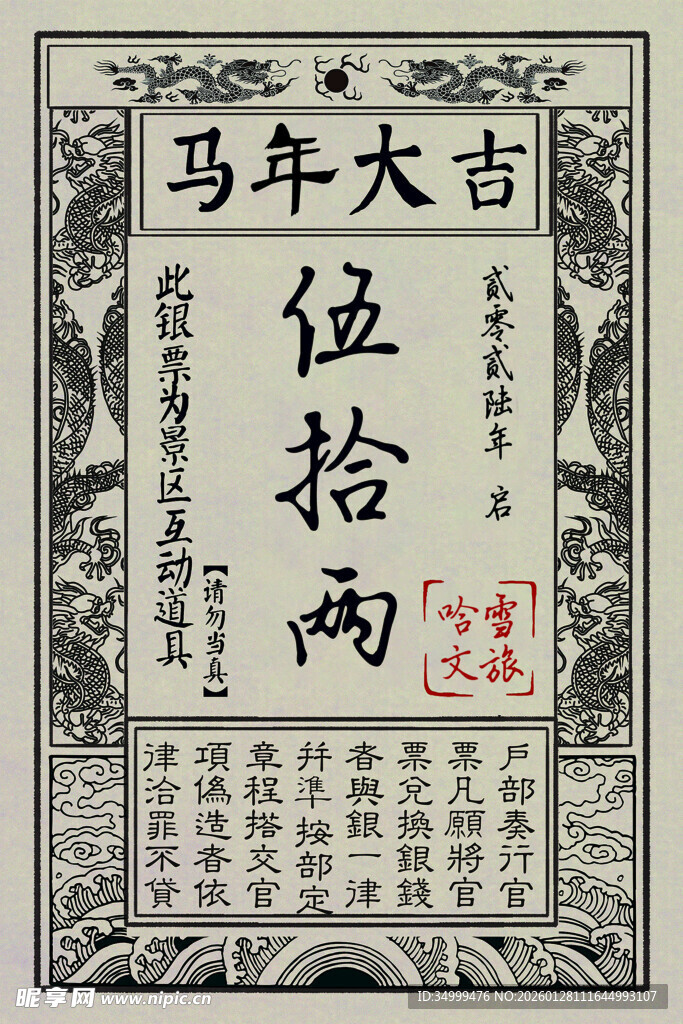 马年大吉
贰零贰陆年 启
伍拾两
此银票为景区互动道具
【请勿当真】
雪旅
哈文
戶部奏行官
票凡願將官
票兌換銀錢
者與銀一律
幷準按部定
章程搭交官
項偽造者依
律治罪不貸
昵享网 www.nipic.cn
ID:34999476 NO:20260128111644993107